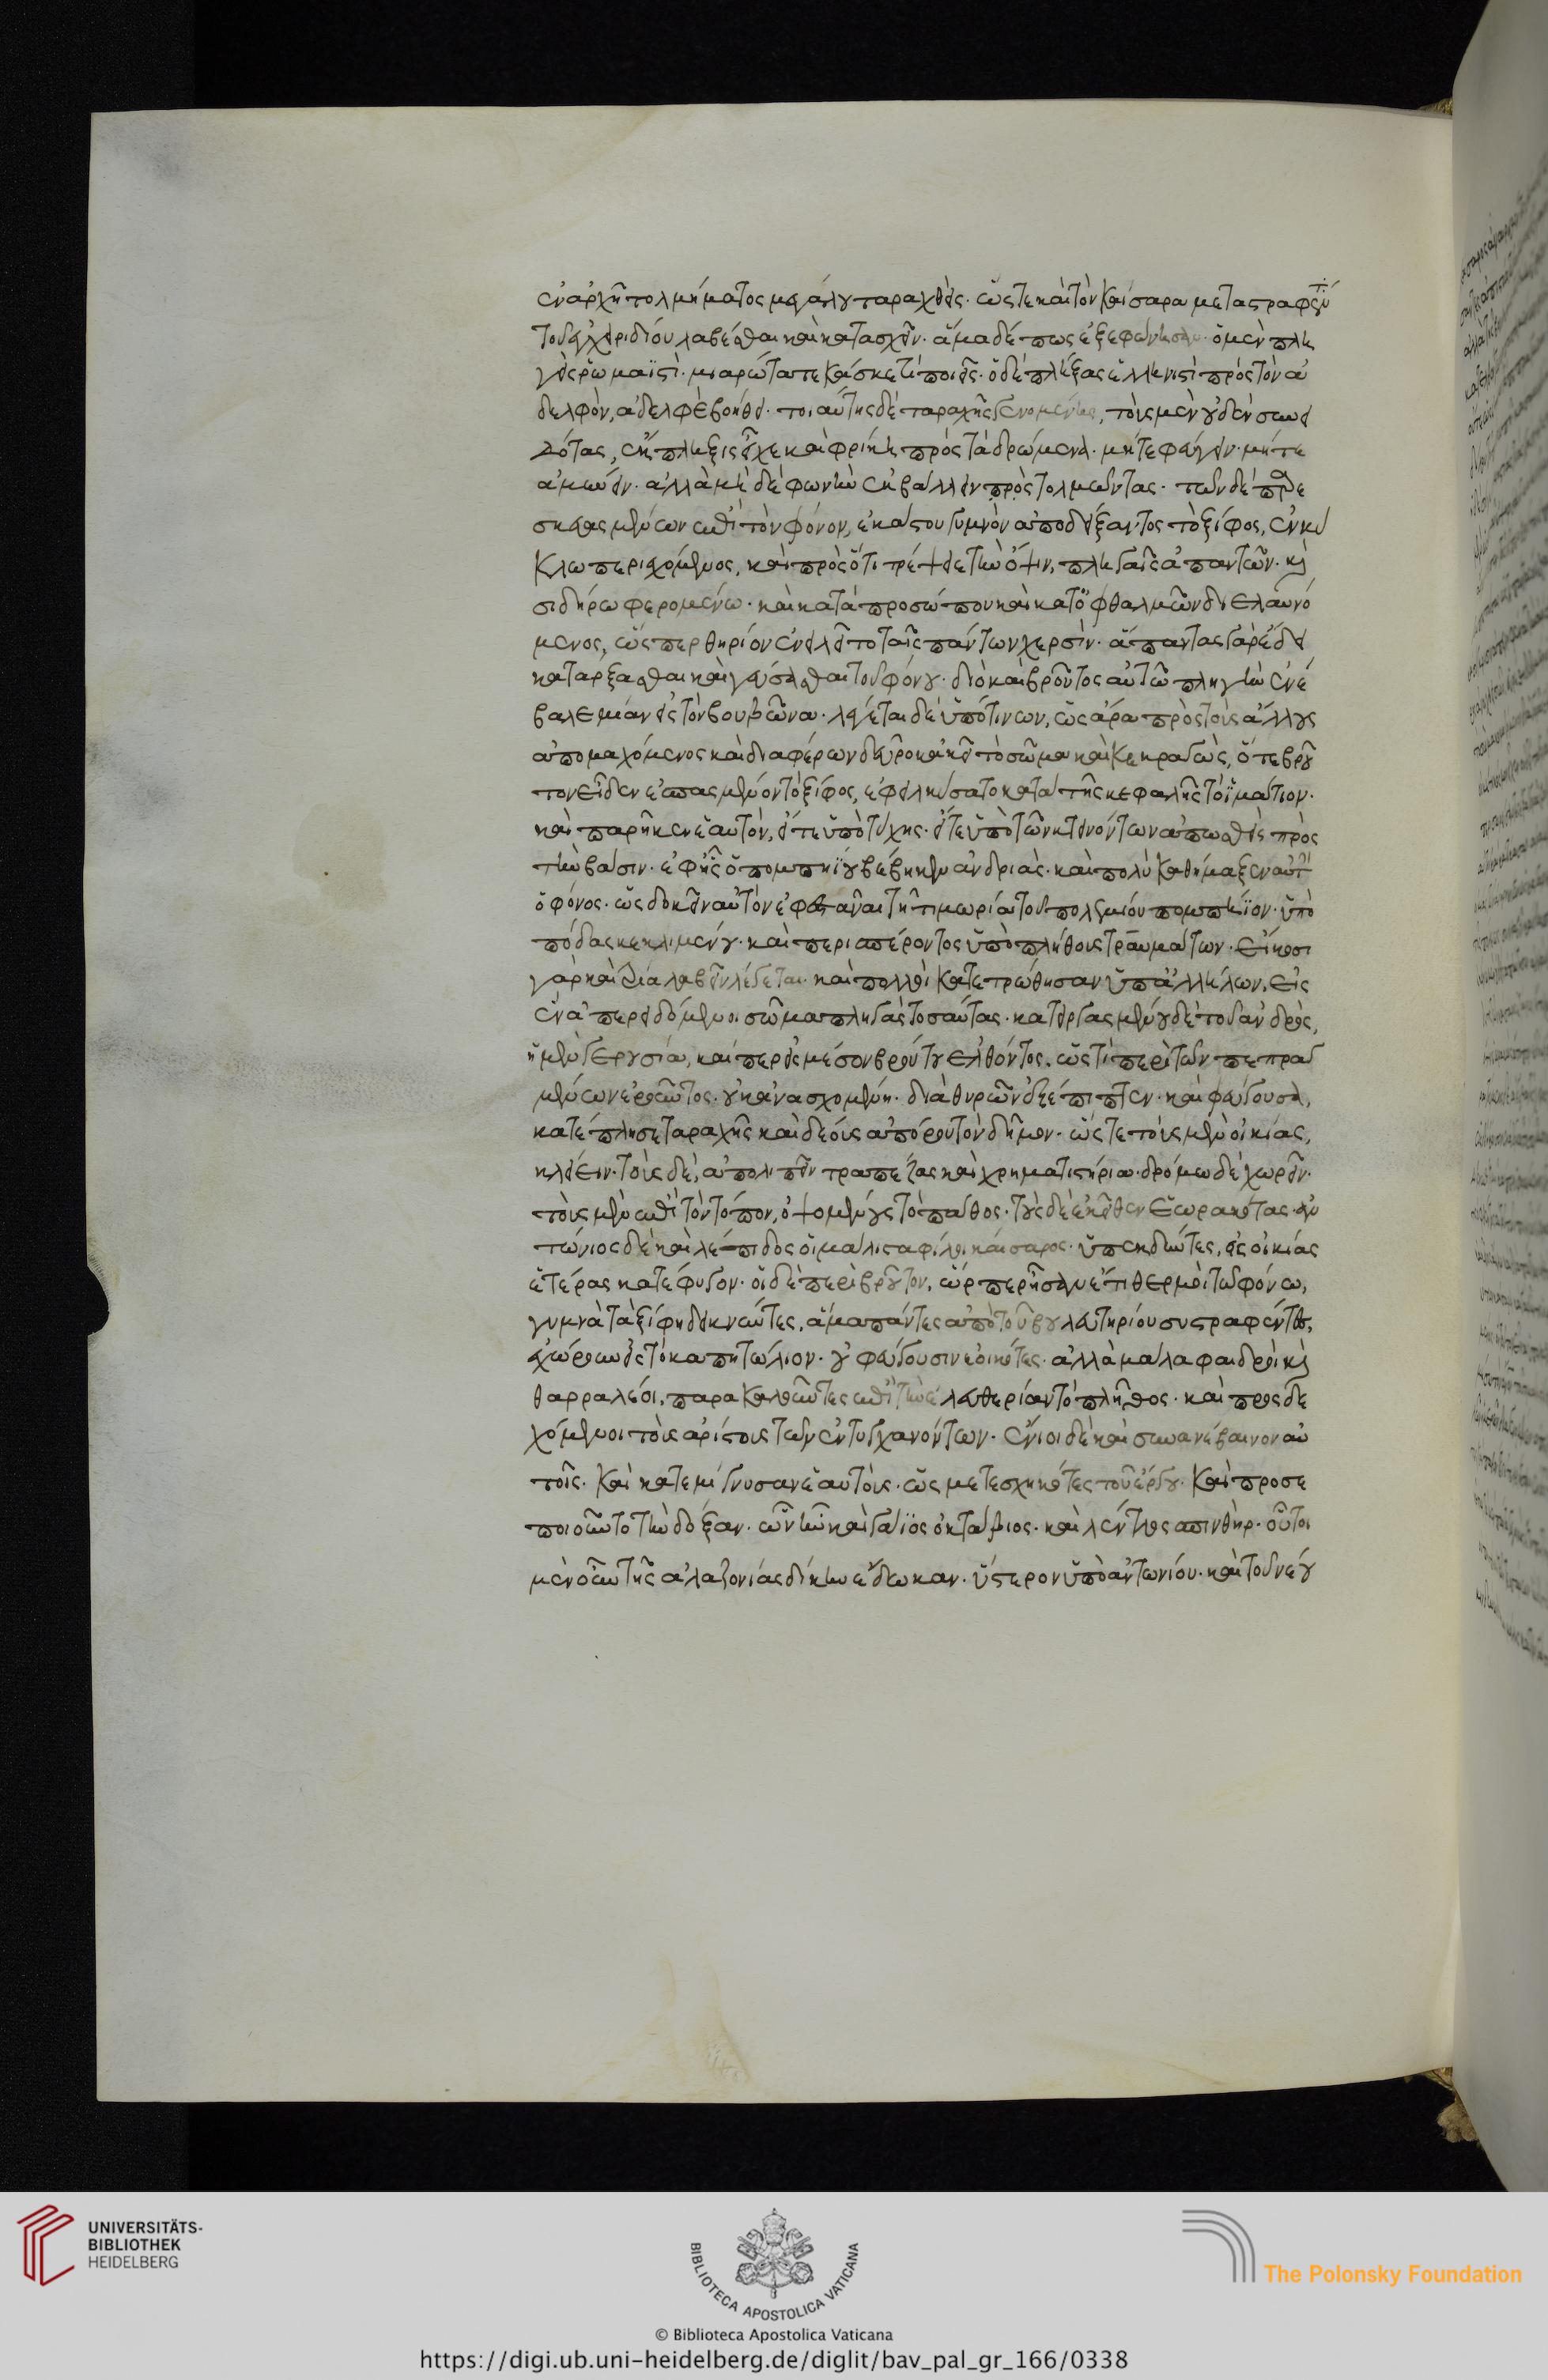 ἐν ἀρχῇ τολμήματος μεγάλου ταραχθείς· ὥς τε καὶ τὸν καίσαρα μεταστραφέντα
τοῦ ἐγχειριδίου λαβέσθαι καὶ κατασχεῖν· ἅμα δέ πως ἐξεφώνησαν· ὁ μὲν πλη
γεὶς ῥωμαϊστί· μιαρώτατε κάσκε τί ποιεῖς· ὁ δὲ πλήξας ἑλληνιστὶ πρὸς τὸν ἀ
δελφὸν, ἀδελφὲ βοήθει· τοιαύτης δὲ ταραχῆς γενομένης, τοὺς μὲν οὐδὲν συνει
δότας, ἔκπληξις εἶχε καὶ φρίκη πρὸς τὰ δρώμενα· μήτε φεύγειν· μήτε
ἀμύνειν· ἀλλὰ μηδὲ φωνὴν ἐκβάλλειν πρὸς τολμῶντας· τῶν δὲ παρε
σκευασμένων ἐπὶ τὸν φόνον, ἑκάστου γυμνὸν ἀποδείξαντος τὸ ξίφος, ἐν κύ
κλω περιεχόμενος, καὶ πρὸς ὅτι τρέψειε τὴν ὄψιν, πληγαῖς ἀπαντῶν· καὶ
σιδήρω φερομένω· καὶ κατὰ προσώπου καὶ κατ' ὀφθαλμῶν διελαυνό
μενος, ὥσπερ θηρίον ἐνειλεῖτο ταῖς πάντων χερσίν· ἅπαντας γὰρ ἔδει
κατάρξασθαι καὶ γεύσασθαι τοῦ φόνου· διὸ καὶ βροῦτος αὐτῶ πληγὴν ἐνέ
βαλε μίαν εἰς τὸν βουβῶνα· λέγεται δὲ ὑπό τινων, ὡς ἄρα πρὸς τοὺς ἄλλους
ἀπομαχόμενος καὶ διαφέρων δεῦρο κἀκεῖ τὸ σῶμα καὶ κεκραγὼς, ὅτε βροῦ
τον εἶδεν ἐσπασμένον τὸ ξίφος, ἐφειλκύσατο κατὰ τῆς κεφαλῆς τὸ ἱμάτιον·
καὶ παρῆκεν ἑαυτὸν, εἴτε ὑπὸ τύχης· εἴτε ὑπὸ τῶν κτεινόντων ἀπωσθεὶς πρὸς
τὴν βάσιν· ἐφ' ἧς ὁ πομπηΐου βέβηκεν ἀνδριὰς· καὶ πολὺ καθήμαξεν αὐτὴν
ὁ φόνος· ὡς δοκεῖν αὐτὸν ἐφεστάναι τῇ τιμωρία τοῦ πολεμίου πομπήϊον· ὑπὸ
πόδας κεκλιμένου· καὶ περισπαίροντος ὑπὸ πλήθους τραυμάτων· εἴκοσι
γὰρ καὶ τρία λαβεῖν λέγεται· καὶ πολλοὶ κατετρώθησαν ὑπ' ἀλλήλων, εἰς
ἓν ἀπερειδόμενοι σῶμα πληγὰς τοσαύτας· κατειργασμένου δὲ τοῦ ἀνδρὸς,
ἡ μὲν γερουσία, καίπερ εἰς μέσον βρούτου ἐλθόντος, ὥς τι περὶ τῶν πεπραγ
μένων ἐροῦντος· οὐκ ἀνασχομένη· διὰ θυρῶν ἐξέπιπτεν· καὶ φεύγουσα,
κατέπλησε ταραχῆς καὶ δέους ἀπόρου τὸν δῆμον· ὥς τε τοὺς μὲν οἰκίας,
κλείειν· τοὺς δὲ, ἀπολιπεῖν τραπέζας καὶ χρηματιστήρια· δρόμω δὲ χωρεῖν·
τοὺς μὲν ἐπὶ τὸν τόπον, ὀψομένους τὸ πάθος· τοὺς δὲ ἐκεῖθεν ἑωρακότας· ἀν
τώνιος δὲ καὶ λέπιδος οἱ μάλιστα φίλοι καίσαρος· ὑπεκδύντες, εἰς οἰκίας
ἑτέρας κατέφυγον· οἱ δὲ περὶ βροῦτον, ὥσπερ ἦσαν ἔτι θερμοὶ τῶ φόνω,
γυμνὰ τὰ ξίφη δεικνύντες, ἅμα πάντες ἀπὸ τοῦ βουλευτηρίου συστραφέντες,
ἐχώρουν εἰς τὸ καπητώλιον· οὐ φεύγουσιν ἐοικότες· ἀλλὰ μάλα φαιδροὶ καὶ
θαρραλέοι, παρακαλοῦντες ἐπὶ τὴν ἐλευθερίαν τὸ πλῆθος· καὶ προσδε
χόμενοι τοὺς ἀρίστους τῶν ἐντυγχανόντων· ἔνιοι δὲ καὶ συνανέβαινον αὐ
τοῖς· καὶ κατεμίγνυσαν ἑαυτοὺς· ὡς μετεσχηκότες τοῦ ἔργου· καὶ προσε
ποιοῦντο τὴν δόξαν· ὧν ἦν καὶ γάϊος ὀκτάβιος· καὶ λέντλος σπινθὴρ· οὗτοι
μὲν οὖν τῆς ἀλαζονίας δίκην ἔδωκαν· ὕστερον ὑπὸ ἀντωνίου· καὶ τοῦ νέου
UNIVERSITÄTS-
BIBLIOTHEK
HEIDELBERG
BIBLIOTECA APOSTOLICA VATICANA
The Polonsky Foundation
© Biblioteca Apostolica Vaticana
https://digi.ub.uni-heidelberg.de/diglit/bav_pal_gr_166/0338